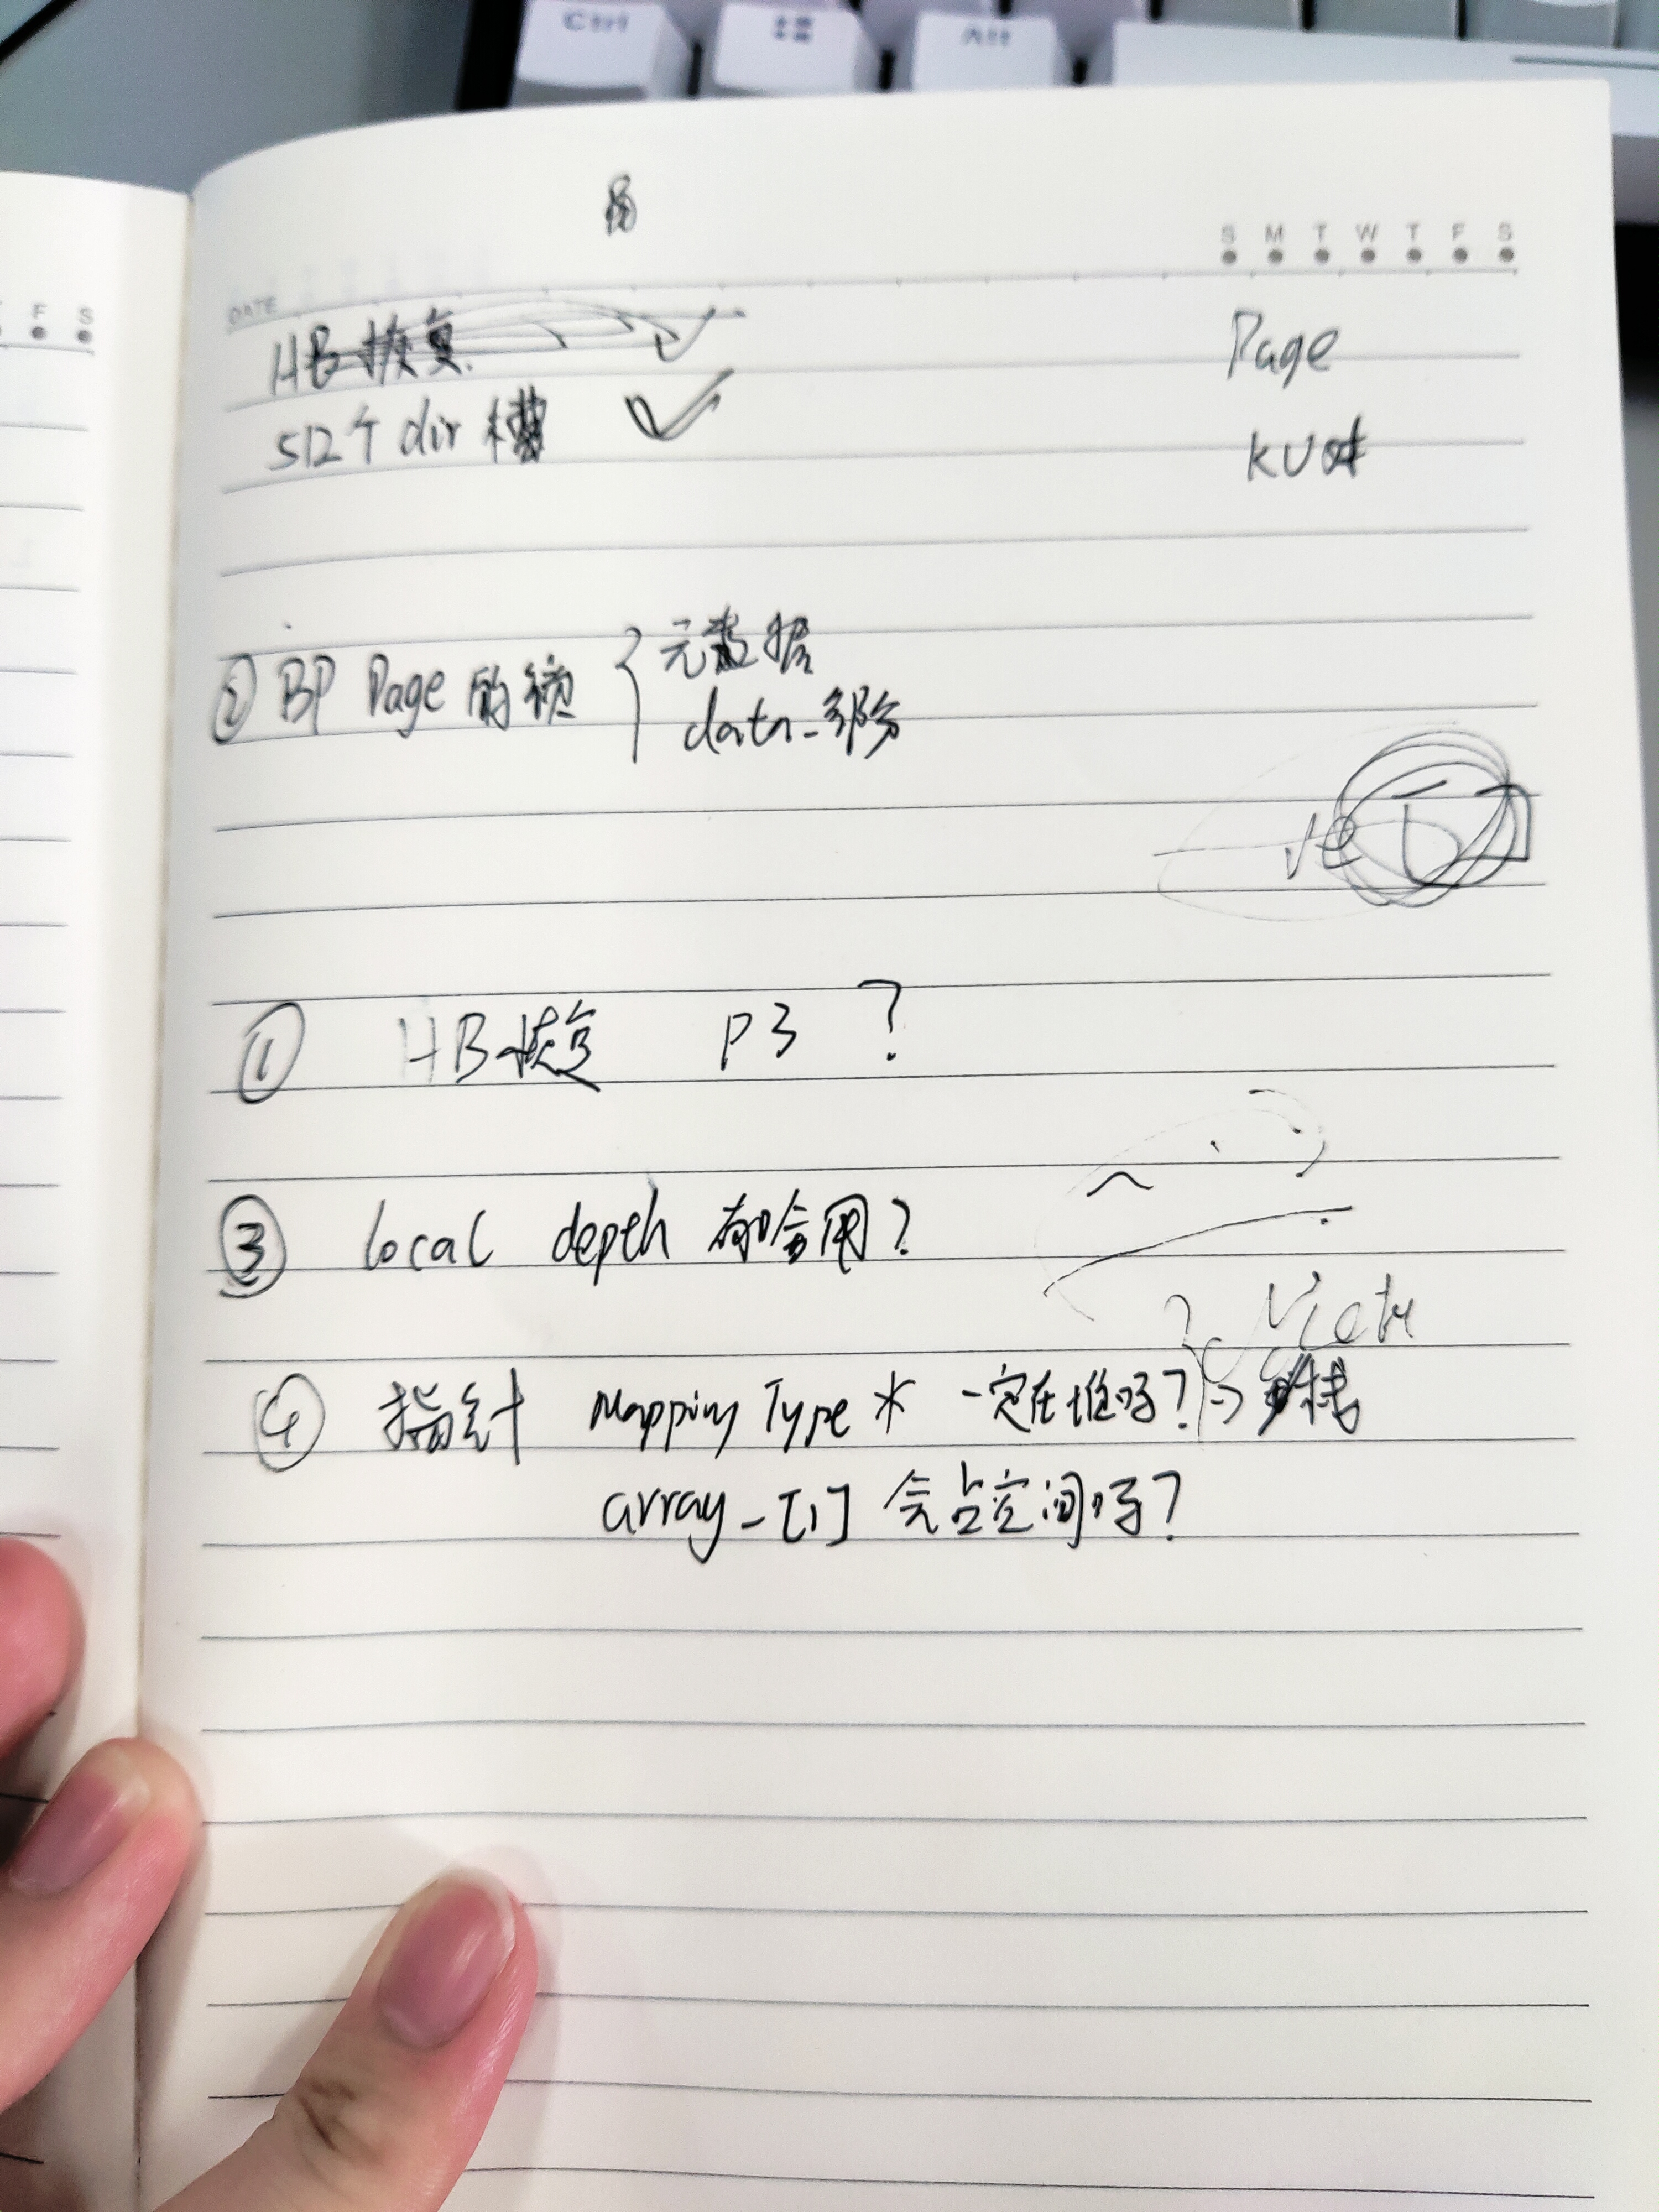 Ctrl
Alt
S M T W T F S
F S
DATE
HB恢复
Page
512个dir槽
KV对
② BP Page的锁 { 元数据
data_部分
① HB恢复 P3 ?
③ local depth 有啥用?
④ 指针 Mapping Type * 一定在堆吗? → 栈
array_[1] 会占空间吗?